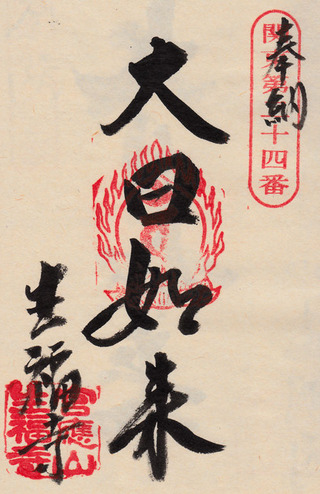 奉納
第 十四番
大日如来
生福寺
生福寺